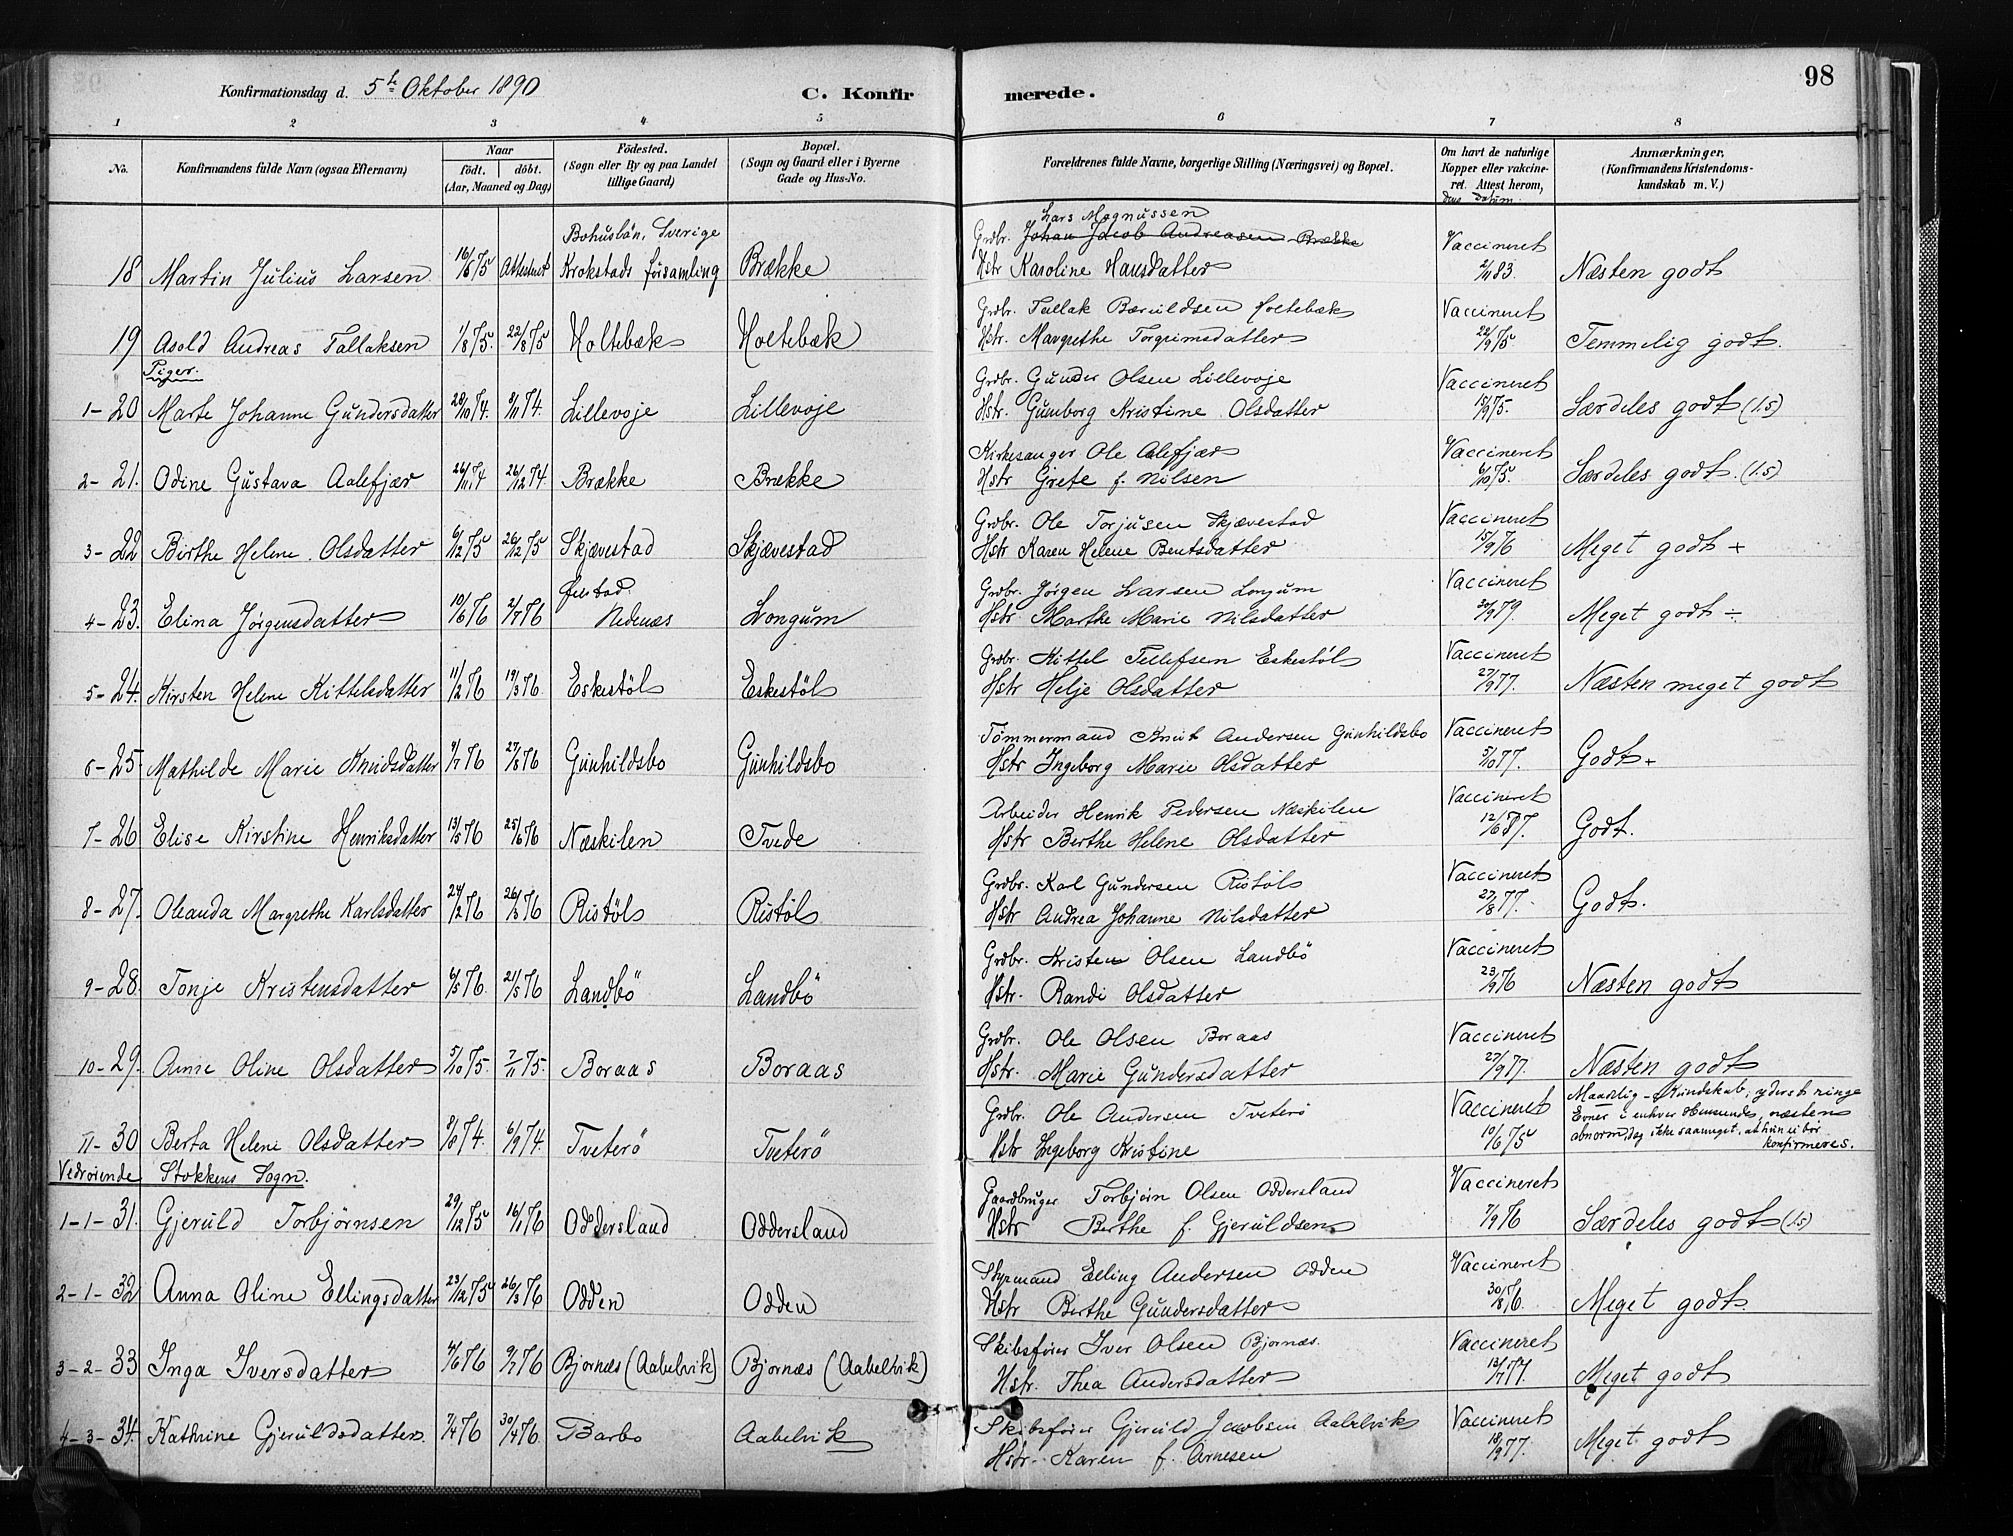 98
Konfirmationsdag d. 5te Oktober 1890 C. Konfir merede.
1 2 3 4 5 6 7 8
No. Konfirmandens fulde Navn (ogsaa Efternavn) Naar født. døbt. (Aar, Maaned og Dag) Fødested. (Sogn eller By og paa Landet tillige Gaard) Bopæl. (Sogn og Gaard eller i Byerne Gade og Hus-No. Forældrenes fulde Navne, borgerlige Stilling (Næringsvei) og Bopæl. Om havt de naturlige Kopper eller vakcineret. Attest herom, dens Datum. Anmærkninger. (Konfirmandens Kristendomskundskab m. V.)
Bohuslän, Sverige Lars Magnussen
Grdbr. Johan Jacob Andreasen Brække Vaccineret
18 Martin Julius Larsen 16/6 75 Attesteret Krokstads församling Brække Hstr Karoline Hansdatter 2/11 83. Næsten godt
Grdbr. Tallak Bæruldsen Holtebæk Vaccineret
19 Asold Andreas Tallaksen 1/8 75. 22/8 75 Holtebæk Holtebæk Hstr. Margrethe Torgrimsdatter 22/9 75 Temmelig godt.
Piger.
Grdbr. Gunder Olsen Lillevoje Vaccineret
1-20 Marte Johanne Gundersdatter 28/10 74. 8/11 74. Lillevoje Lillevoje Hstr. Gumborg Kristine Olsdatter 15/9 75. Særdeles godt (1.5)
Kirkesanger Ole Aalefjær Vaccineret
2-21. Odine Gustava Aalefjær 26/11 74 26/12 74. Brække Brække Hstr Grete f. Nilsen 6/10 75. Særdeles godt. (1.5)
Grdbr. Ole Torjusen Skjævestad Vaccineret
3-22 Birthe Helene Olsdatter 6/12 75 26/12 75 Skjævestad Skjævestad Hstr Karen Helene Bentsdatter 15/9 76 Meget godt +
Øiestad. Grdbr. Jørgen Larsen Longum Vaccineret
4-23. Elina Jørgensdatter 10/6 76 2/7 76 Nedenæs Longum Hstr Marthe Marie Nilsdatter 30/9 79. Meget godt ÷
Grdbr. Kittel Tellefsen Eskestøl Vaccineret
5-24. Kirsten Helene Kittelsdatter 11/2 76 19/3 76 Eskestøl Eskestøl Hstr Helje Olsdatter 27/9 77. Næsten meget godt
Tømmermand Knut Andersen Gunhildsbo Vaccineret
6-25 Mathilde Marie Knudsdatter 4/7 76 27/8 76 Gunhildsbo Gunhildsbo Hstr Ingeborg Marie Olsdatter 5/10 77. Godt +
Arbeider Henrik Pedersen Næskilen Vaccineret
7-26 Elise Kirstine Henriksdatter 13/5 76 25/6 76 Næskilen Tvede Hstr Berthe Helene Olsdatter 12/6 87. Godt.
Grdbr. Karl Gundersen Ristøl Vaccineret
8-27. Oleanda Margrethe Karlsdatter 24/2 76 26/3 76 Ristøl Ristøl Hstr Andrea Johanne Nilsdatter 27/8 77. Godt.
Grdbr. Kristen Olsen Landbö Vaccineret
9-28. Tonje Kristensdatter 6/5 76. 21/5 76 Landbö Landbö Hstr. Randi Olsdatter 23/9 76 Næsten godt
Grdbr. Ole Olsen Boraas Vaccineret
10-29. Anne Oline Olsdatter 5/10 75. 7/11 75. Boraas Boraas Hstr. Marie Gundersdatter 27/9 77. Næsten godt
Grdbr. Ole Andersen Tveterö Vaccineret Maadelig Kundskab; yderst ringe Evner i enhver Henseende, næsten
11-30 Berta Helene Olsdatter 9/8 74. 6/9 74. Tveterö Tveterö Hstr Ingeborg Kristine 10/6 75 abnorm, dog ikke saameget, at hun ei bör konfirmeres.
Vedrørende Stokkens Sogn.
Gaardbruger Torbjørn Olsen Oddersland Vaccineret
1-1-31. Gjeruld Torbjørnsen 29/12 75 16/1 76 Oddersland Oddersland Hstr Berthe f. Gjeruldsen 7/9 76 Særdeles godt (1.5)
Styrmand Elling Andersen Odden Vaccineret
2-1-32 Anna Oline Ellingsdatter 23/12 75 26/3 76 Odden Odden Hstr Berthe Gundersdatter 30/8 76. Meget godt.
Skibsfører Iver Olsen Bjornæs. Vaccineret
3-2-33 Inga Iversdatter 4/6 76 9/7 76 Bjornæs (Aabelvik) Bjornæs (Aabelvik) Hstr. Thea Andersdatter 13/7 77. Meget godt
Skibsfører Gjeruld Jacobsen Aabelvik Vaccineret
4-3-34. Kathrine Gjeruldsdatter. 7/4 76 30/4 76. Barbo Aabelvik Hstr. Karen f. Arnesen 18/9 77. Meget godt